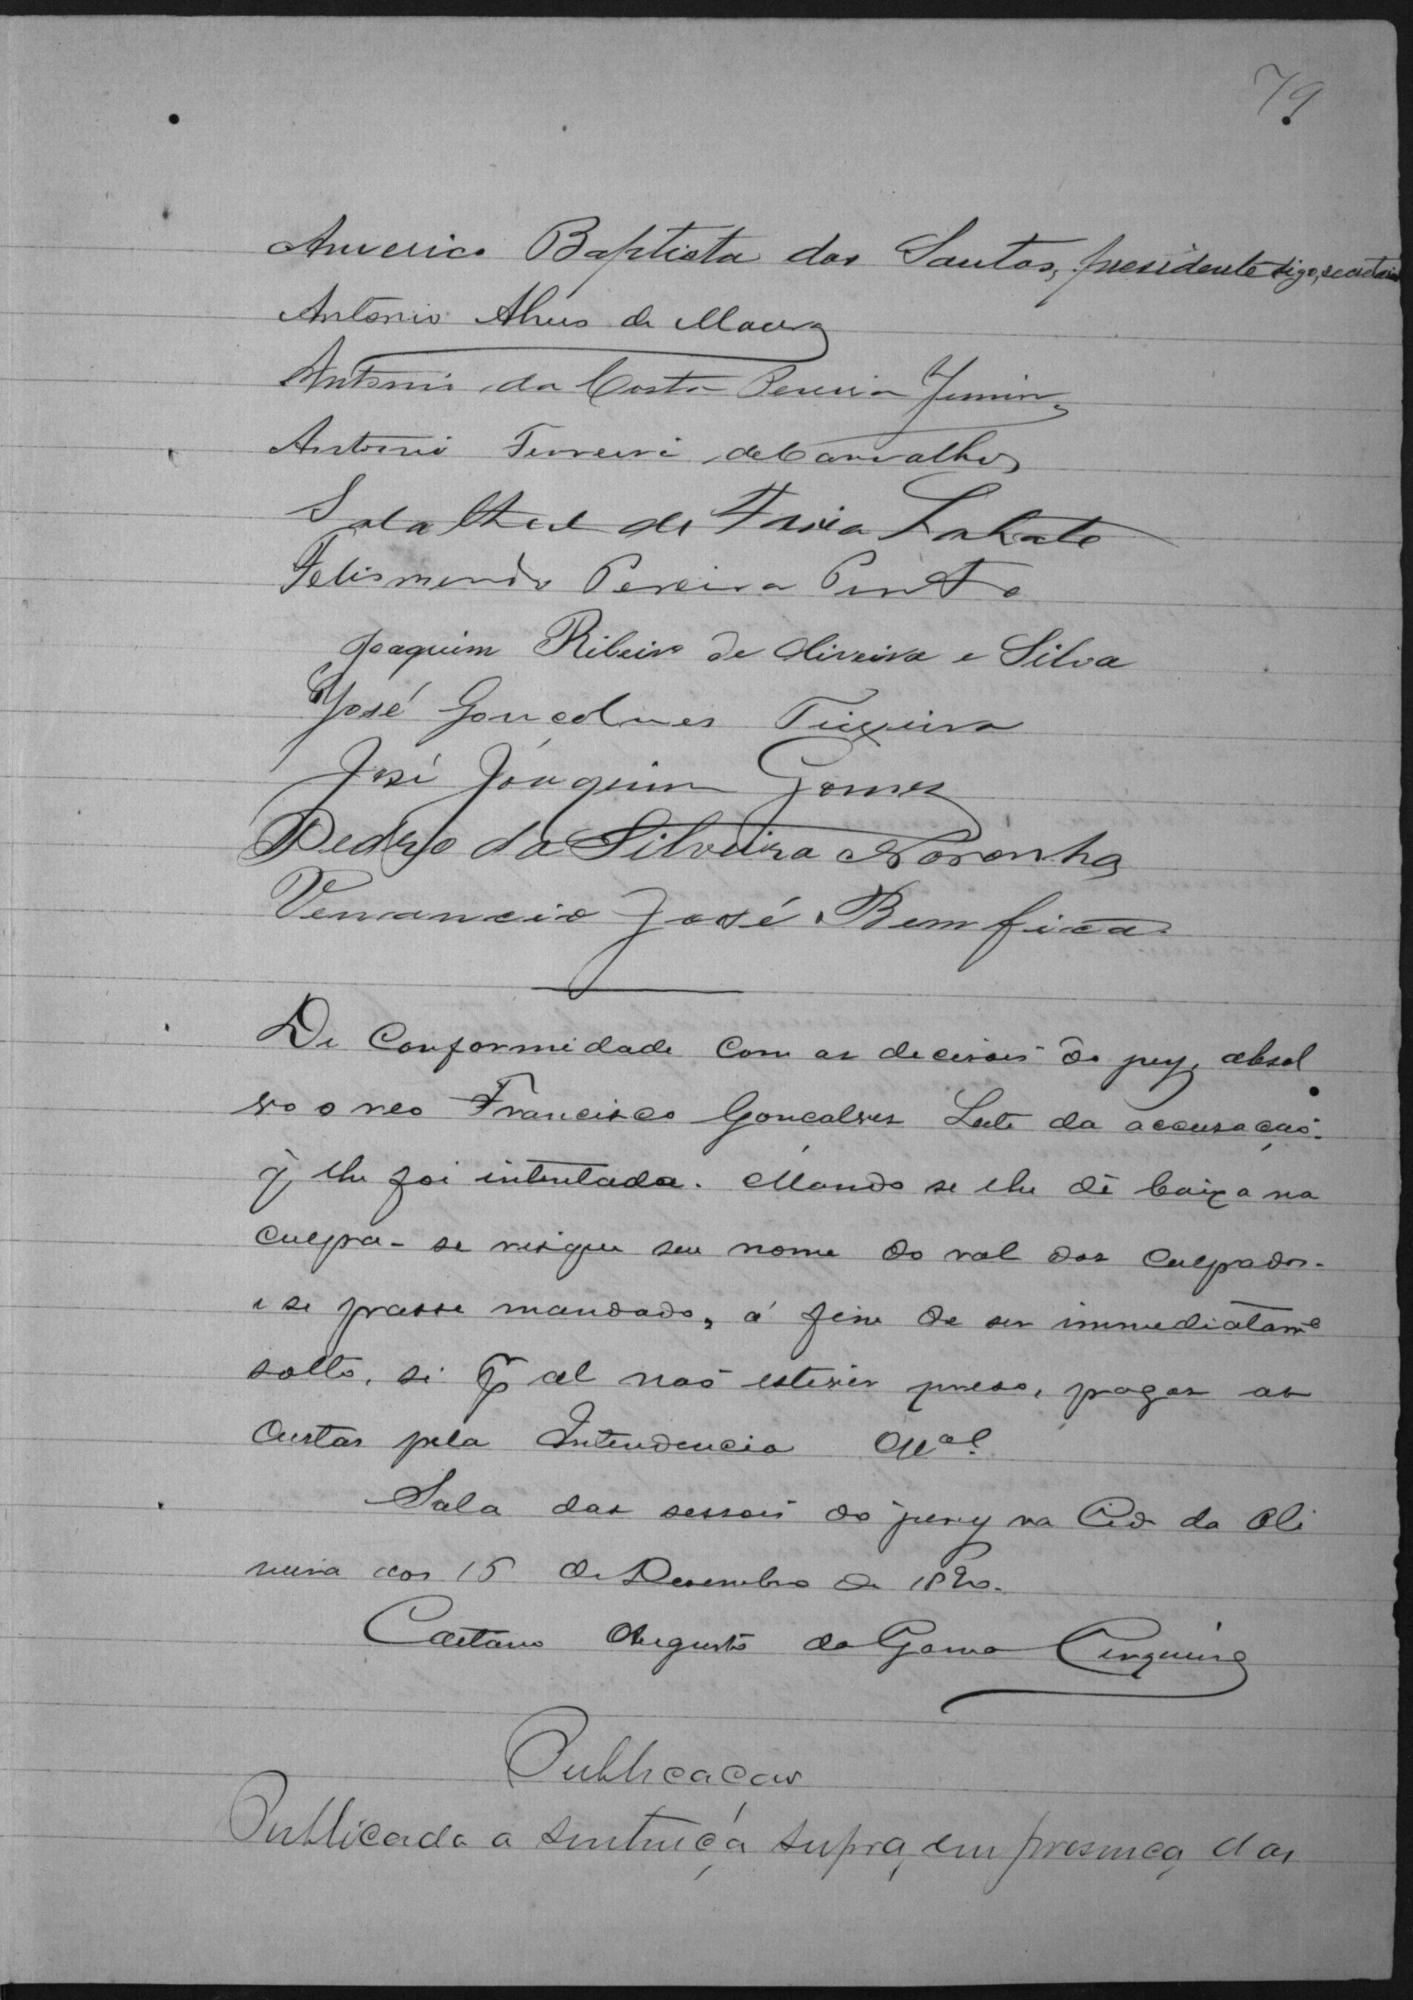 79
Americo Baptista dos Santos, presidente digo, secretario
Antonio Alves de Macedo
Antonio da Costa Pereira Junior
Antonio Ferreira de Carvalho
de Faria
Felismendo Pereira Pinto
Joaquim Ribeiro de Oliveira e Silva
José Gonçalves Teixeira
José Joaquim Gomes
Pedro da Silveira Noronha
Venancio José Bemfica
De conformidade com as decisoẽs do jury, absol
vo o reo Francisco Gonçalves Leite da accusação
q̃ lhe foi intentada. Mando se lhe dê baixa na
culpa - se risque seu nome do rol dos culpados -
e se passe mandado, á fim de ser immediatamᵉ
solto, si p͂r al naõ estiver preso, pagas as
custas pela Intendencia Mᵃˡ.
Sala das sessoẽs do jury na Cidᵉ da Oli
veira aos 15 de Dezembro de 1890.
Caetano Augusto da Gama Cerqueira
Publicaçaõ
Publicada a sentença supra, em presença das